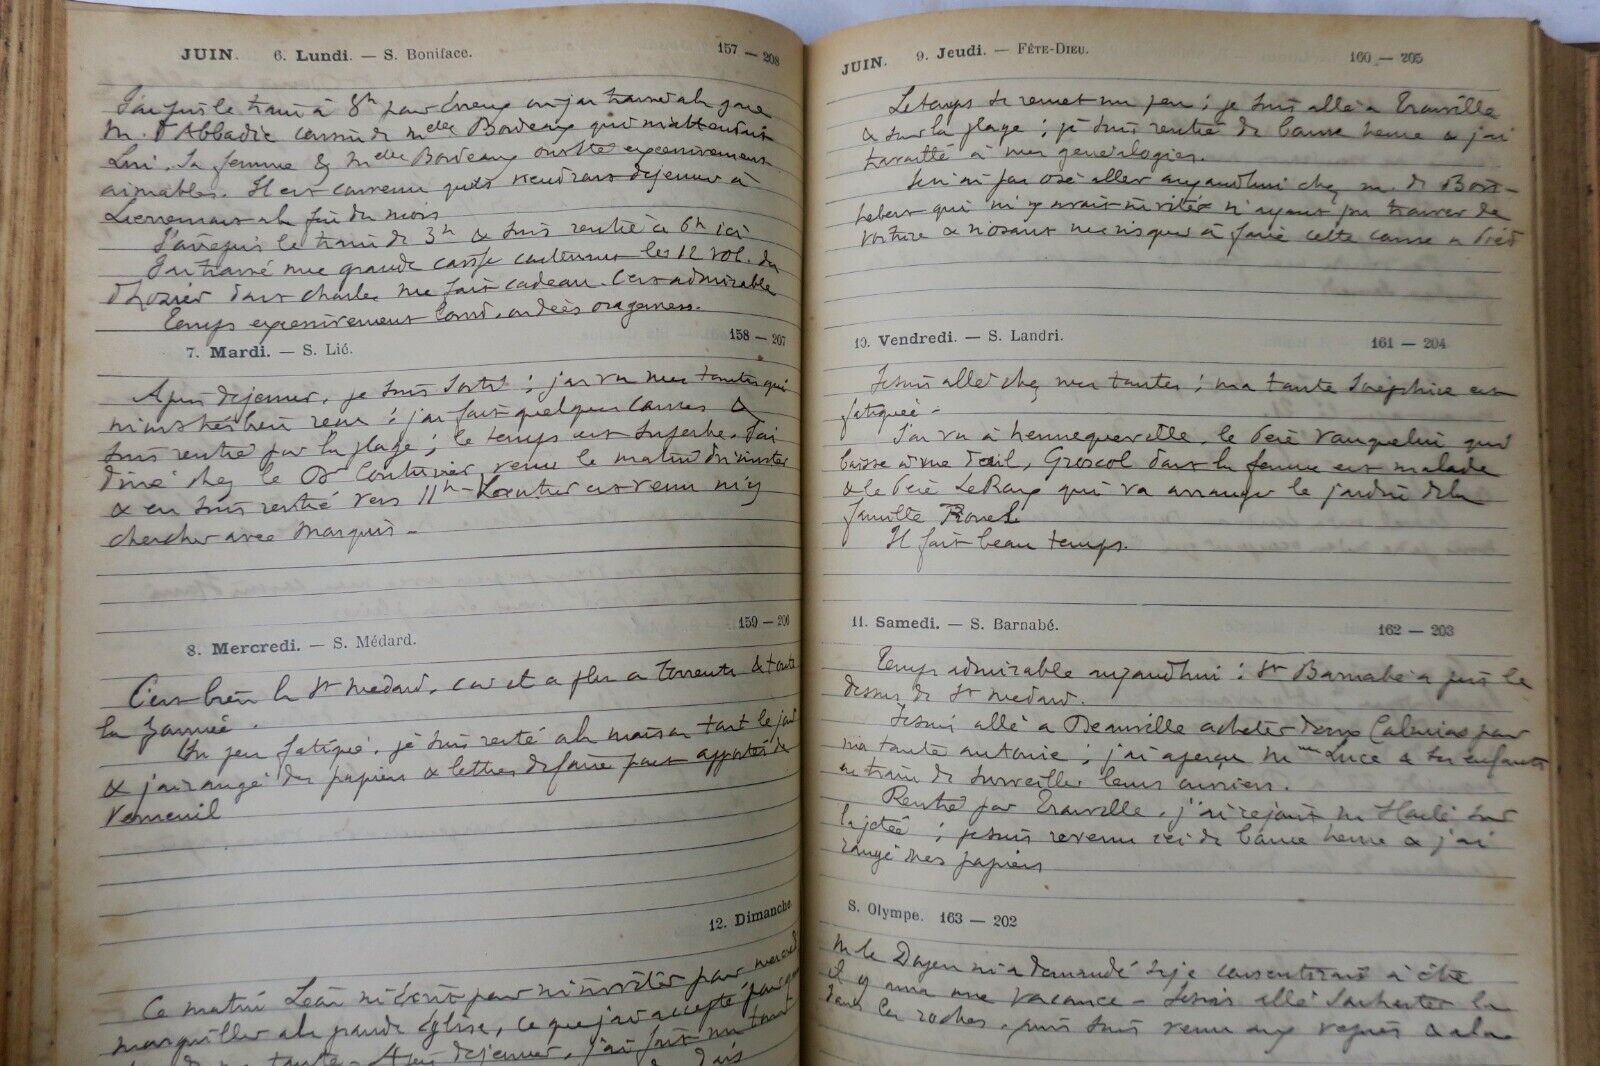 JUIN. 6. Lundi. — S. Boniface. 157 — 208
J'ai pris le train à 8h pour où j'ai trouvé à la gare
M. d'Abbadie cousin de Mdes Bordeaux qui m'attendait
Lui, sa femme & Mdes Bordeaux ont été excessivement
aimables. Il est convenu qu'ils viendront déjeuner à
à la fin du mois
J'ai repris le train de 3h & suis rentré à 6h ici
J'ai trouvé une grande caisse contenant les 12 vol. de
d'Hozier dont Charles me fait cadeau. C'est admirable
Temps excessivement lourd, orageux.
7. Mardi. — S. Lié. 158 — 207
Après déjeuner, je suis sorti ; j'ai vu mes tantes qui
m'ont très bien reçu ; j'ai fait quelques courses &
suis rentré par la plage ; le temps est superbe. J'ai
diné chez le Dr Couturier venu le matin m'inviter
& en suis rentré vers 11h - est venu m'y
chercher avec Marquis -
8. Mercredi. — S. Médard. 159 — 206
C'est bien la St Médard, car il a plu à torrents & toute
la journée.
Un peu fatigué, je suis resté à la maison tout le jour
& j'ai rangé des papiers & lettres de faire part apportés de
Verneuil
12. Dimanche.
Ce matin Léon m'écrit pour m'inviter pour mercredi
marguiller à la grande Église, ce que j'ai accepté pour
tante. Après déjeuner, j'ai fait un tour
JUIN. 9. Jeudi. — FÊTE-DIEU. 160 — 205
Le temps se remet un peu ; je suis allé à Trouville
& sur la plage ; je suis rentré de bonne heure & j'ai
travaillé à mes généalogies.
Je n'ai pas osé aller aujourd'hui chez M. de
qui m'y avait invité n'ayant pu trouver de
voiture & n'osant me risquer à faire cette course à pied
10. Vendredi. — S. Landri. 161 — 204
Je suis allé chez mes tantes ; ma tante Joséphine est
fatiguée -
J'ai vu à Hennequeville, le Père Vauquelin qui
baisse d'œil, Groscol dont la femme est malade
& le Père qui va arranger le jardin de la
famille
Il fait beau temps.
11. Samedi. — S. Barnabé. 162 — 203
Temps admirable aujourd'hui ; St Barnabé a pris le
dessus de St Médard.
Je suis allé à Deauville acheter deux pour
ma tante Antonie ; j'ai aperçu Mme Luce & ses enfants
en train de surveiller leurs ouvriers.
Rentré par Trouville, j'ai rejoint M. sur
la jetée ; je suis revenu ici de bonne heure & j'ai
rangé mes papiers
S. Olympe. 163 — 202
M. le Doyen m'a demandé si je consentirais à être
il y aura une vacance - Je suis allé la
dans les roches, puis suis revenu aux vêpres & à la